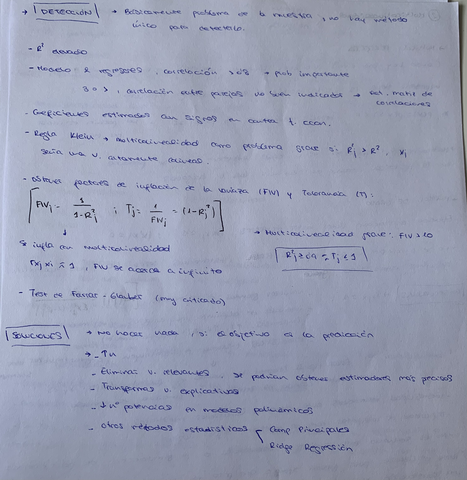 → DETECCIÓN → Básicamente problema de la muestra, no hay método
único para detectarlo.
- R² elevado
- Modelo 2 regresores, correlación > 0'8 → prob importante
3 o >, correlación entre parejas no buen indicador → est. matriz de
correlaciones
- Coeficientes estimados con signos en contra t. econ.
- Regla Klein → multicolinealidad como problema grave si R²j > R², xj
sería una v. altamente
- Obtener factores de inflación de la varianza (FIV) y Tolerancia (T):
FIVj = 1/(1-R²j) ; Tj = 1/FIVj = (1-R²j)
↓
Se infla con multicolinealidad → Multicolinealidad grave: FIV > 10
rxixj ≈ 1, FIV se acerca a infinito
- Test de Farrar-Glauber (muy criticado)
SOLUCIONES → No hacer nada, si el objetivo es la predicción
→ - ↑n
- Eliminar v. relevantes. Se podrían obtener estimadores más precisos
- Transformar v. explicativas
- ↓ nº potencias en modelos polinómicos
- otros métodos estadísticos Comp Principales
Ridge Regression